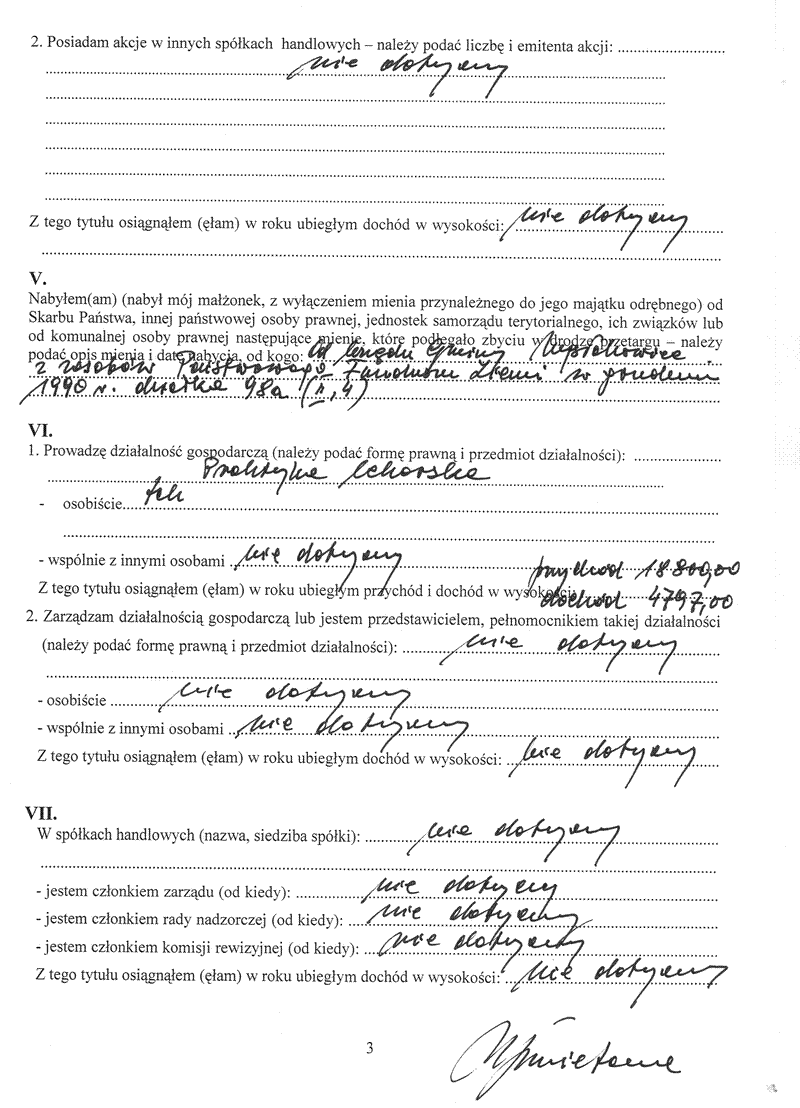 2. Posiadam akcje w innych spółkach handlowych – należy podać liczbę i emitenta akcji: ............................
nie dotyczy
Z tego tytułu osiągnąłem (ęłam) w roku ubiegłym dochód w wysokości: nie dotyczy
V.
Nabyłem(am) (nabył mój małżonek, z wyłączeniem mienia przynależnego do jego majątku odrębnego) od
Skarbu Państwa, innej państwowej osoby prawnej, jednostek samorządu terytorialnego, ich związków lub
od komunalnej osoby prawnej następujące mienie, które podlegało zbyciu w drodze przetargu – należy
podać opis mienia i datę nabycia, od kogo: od Urzędu Gminy
z zasobów Państwowego Funduszu Ziemi w grudniu
1990 r. działka 98a (II, 4)
VI.
1. Prowadzę działalność gospodarczą (należy podać formę prawną i przedmiot działalności): ......................
Praktyka lekarska
- osobiście..... tak
- wspólnie z innymi osobami .. nie dotyczy przychod 18 800,00
Z tego tytułu osiągnąłem (ęłam) w roku ubiegłym przychód i dochód w wysokości: dochód 4797,00
2. Zarządzam działalnością gospodarczą lub jestem przedstawicielem, pełnomocnikiem takiej działalności
(należy podać formę prawną i przedmiot działalności): nie dotyczy
- osobiście nie dotyczy
- wspólnie z innymi osobami .. nie dotyczy
Z tego tytułu osiągnąłem (ęłam) w roku ubiegłym dochód w wysokości: nie dotyczy
VII.
W spółkach handlowych (nazwa, siedziba spółki): nie dotyczy
- jestem członkiem zarządu (od kiedy): nie dotyczy
- jestem członkiem rady nadzorczej (od kiedy): nie dotyczy
- jestem członkiem komisji rewizyjnej (od kiedy): nie dotyczy
Z tego tytułu osiągnąłem (ęłam) w roku ubiegłym dochód w wysokości: nie dotyczy
3